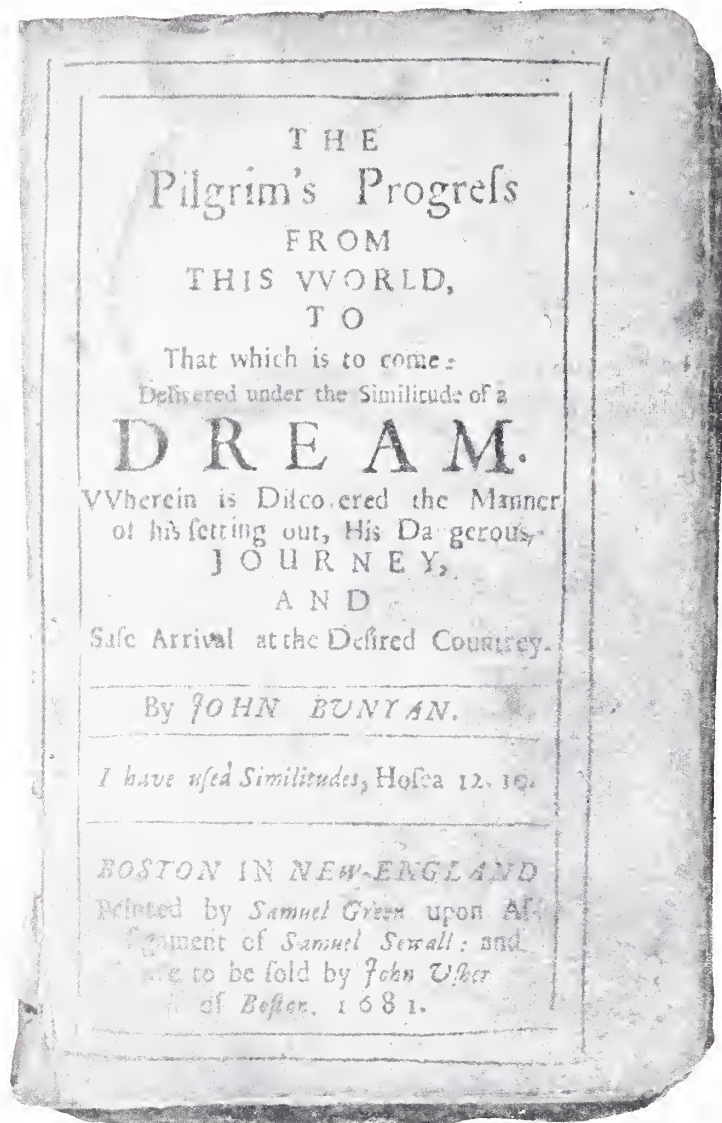 THE
Pilgrim's Progreſs
FROM
THIS VVORLD,
TO
That which is to come:
Delivered under the Similitude of a
DREAM.
VVherein is Diſco ered the Manner
of his ſetting out, His Da gerous,
JOURNEY,
AND
Safe Arrival at the Deſired Countrey.
By JOHN BUNYAN.
I have uſed Similitudes, Hoſea 12. 10.
BOSTON IN NEW-ENGLAND
Printed by Samuel Green upon Aſ-
ſignment of Samuel Sewall: and
to be ſold by John Uſher
of Boſton. 1681.